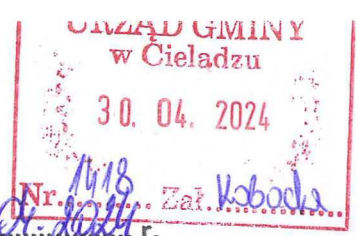 URZĄD GMINY
w Cielądzu
30. 04. 2024
Nr 1418 Zał.
2024 r.